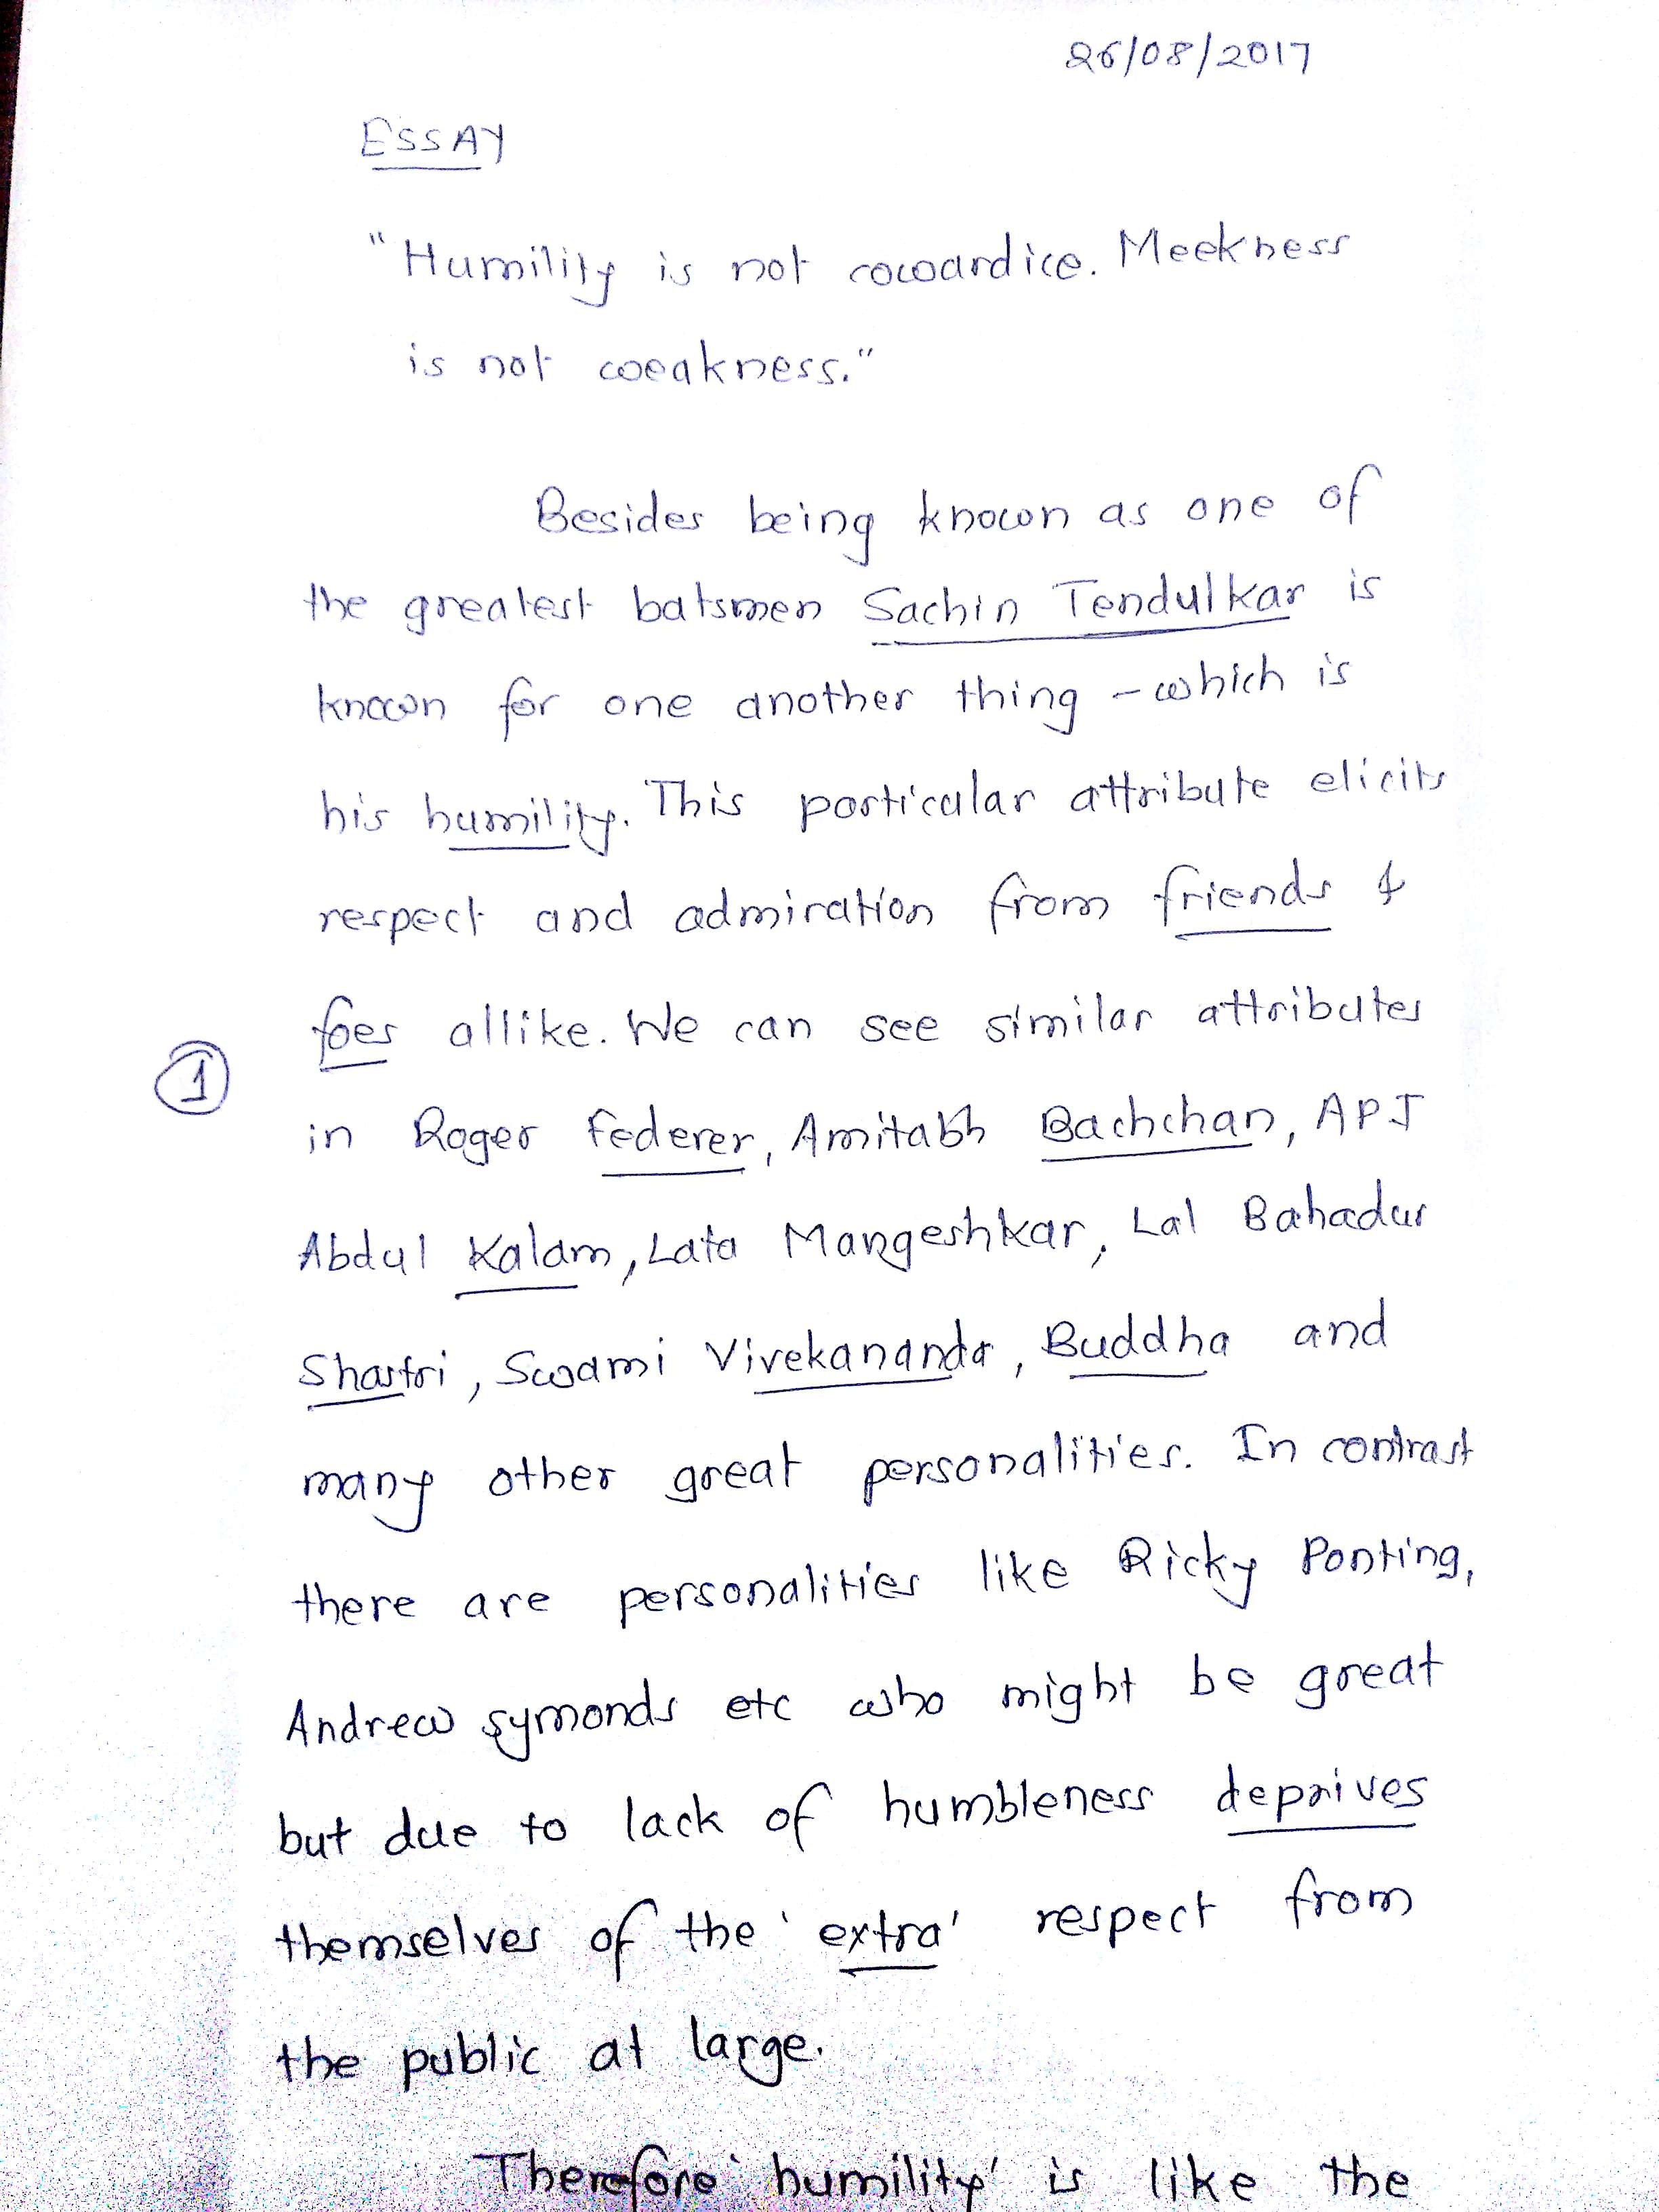 26/08/2017
ESSAY
"Humility is not cowardice. Meekness
is not weakness."
Besides being known as one of
the greatest batsmen Sachin Tendulkar is
known for one another thing - which is
his humility. This particular attribute elicits
respect and admiration from friends &
foes allike. We can see similar attributes
in Roger Federer, Amitabh Bachchan, APJ
Abdul Kalam, Lata Mangeshkar, Lal Bahadur
Shastri, Swami Vivekananda, Buddha and
1
many other great personalities. In contrast
there are personalities like Ricky Ponting,
Andrew symonds etc who might be great
but due to lack of humbleness deprives
themselves of the 'extra' respect from
the public at large.
Therefore 'humility' is like the